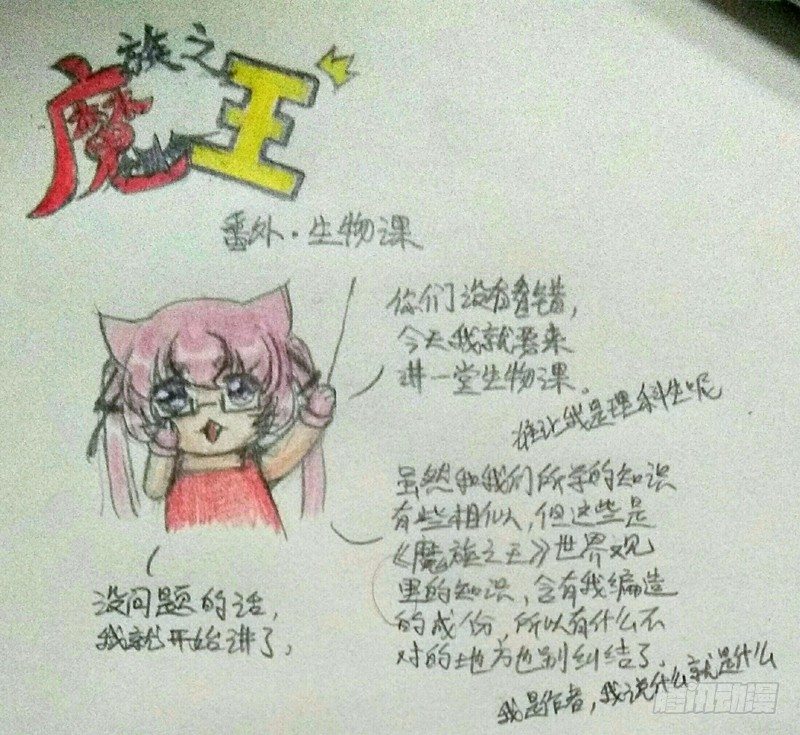 魔族之王
番外·生物课
你们没有看错，
今天我就要来
讲一堂生物课。
谁让我是理科生呢
虽然和我们所学的知识
有些相似，但这些是
《魔族之王》世界观
里的知识，含有我编造
的成份，所以有什么不
对的地方也别纠结了。
我是作者，我说什么就是什么
没问题的话，
我就开始讲了，